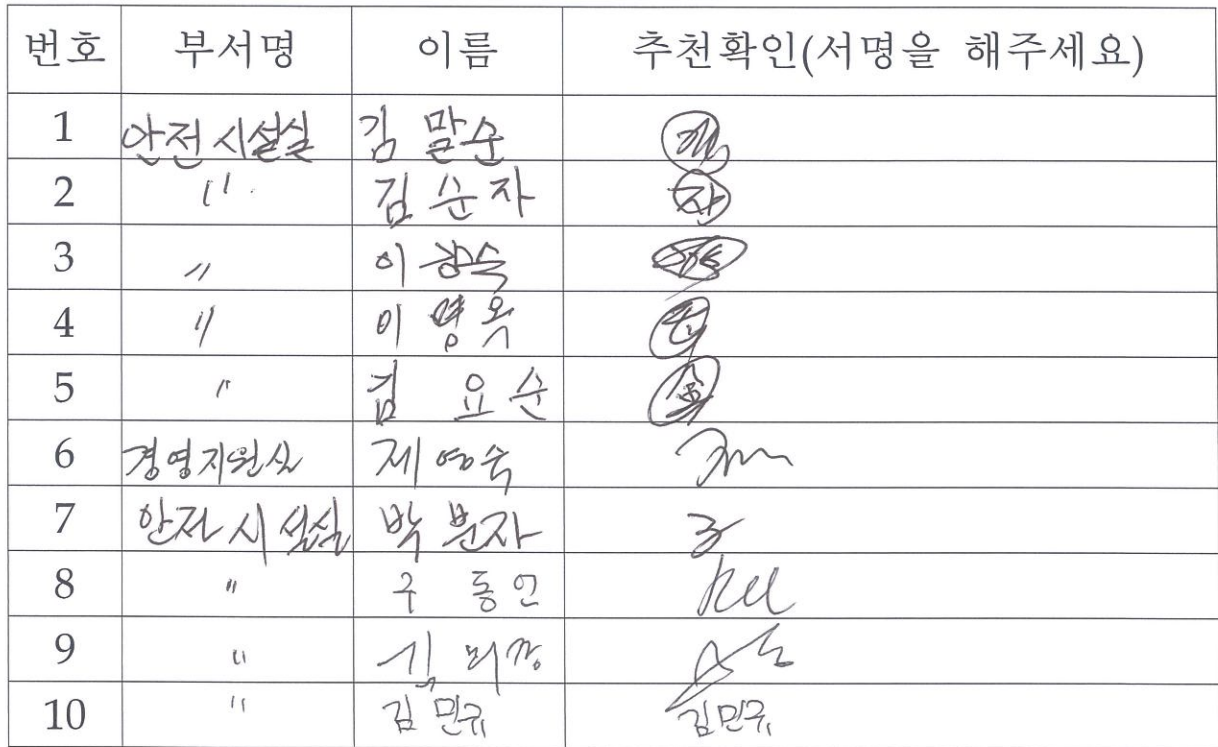 번호 부서명 이름 추천확인(서명을 해주세요)
1 안전시설실 김말순
2 〃 김순자 자
3 〃 이광숙
4 〃 이영옥
5 〃 김요순
6 경영지원실 제영숙
7 안전시설실 박분자
8 〃 구동인
9 〃
10 〃 김민규 김민규